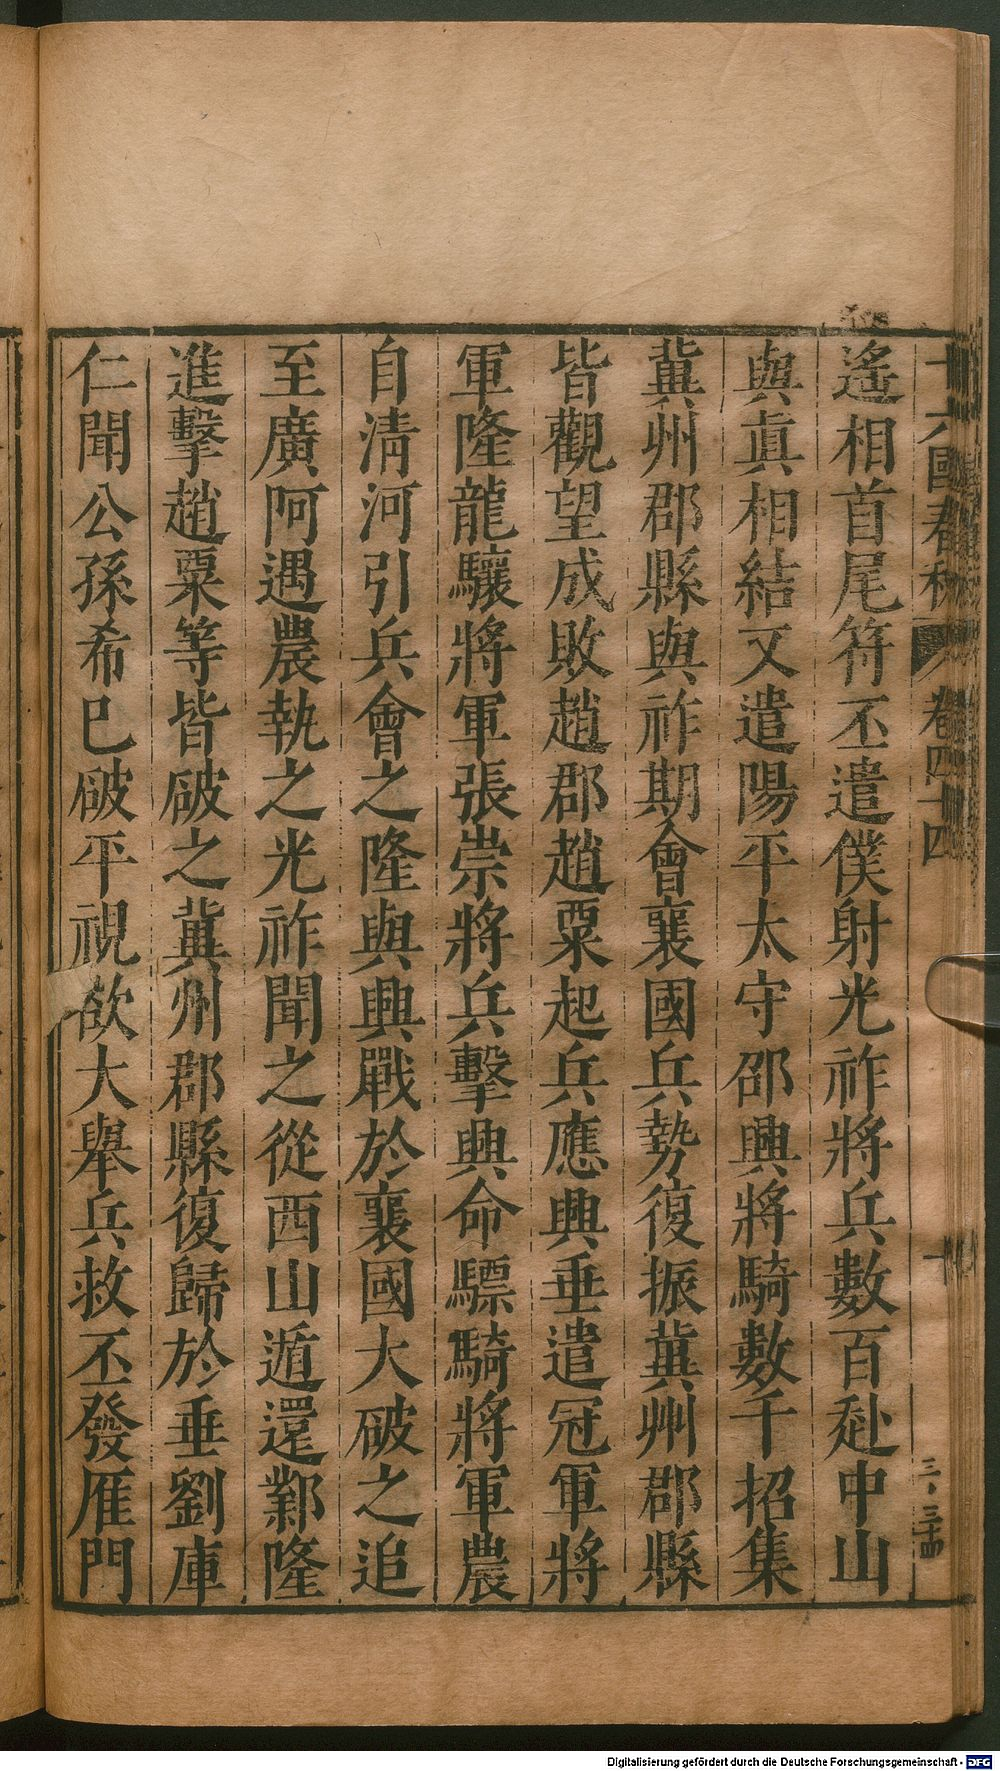 十六國春秋 卷四十四 十 三、三十四
遙相首尾符丕遣僕射光祚將兵數百赴中山
與眞相結又遣陽平太守邵興將騎數千招集
冀州郡縣與祚期會襄國兵勢復振冀州郡縣
皆觀望成敗趙郡趙粟起兵應興垂遣冠軍將
軍隆龍驤將軍張崇將兵擊興命驃騎將軍農
自淸河引兵會之隆與興戰於襄國大破之追
至廣阿遇農執之光祚聞之從西山遁還鄴隆
進擊趙粟等皆破之冀州郡縣復歸於垂劉庫
仁聞公孫希已破平視欲大舉兵救丕發雁門
Digitalisierung gefördert durch die Deutsche Forschungsgemeinschaft - DFG